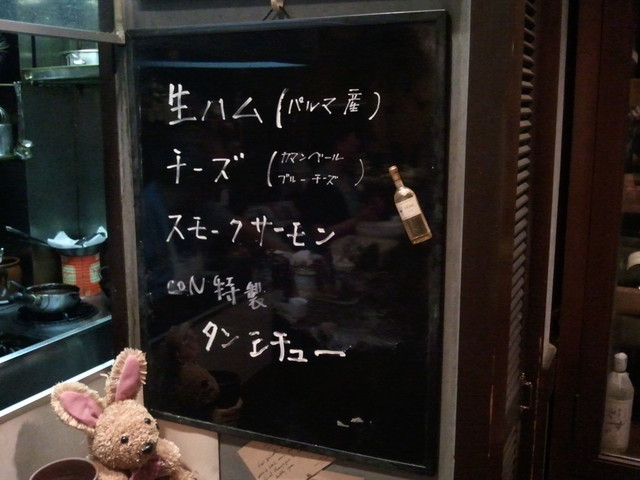 生ハム (パルマ産)
チーズ (カマンベール
ブルーチーズ)
スモークサーモン
coN 特製
タンシチュー